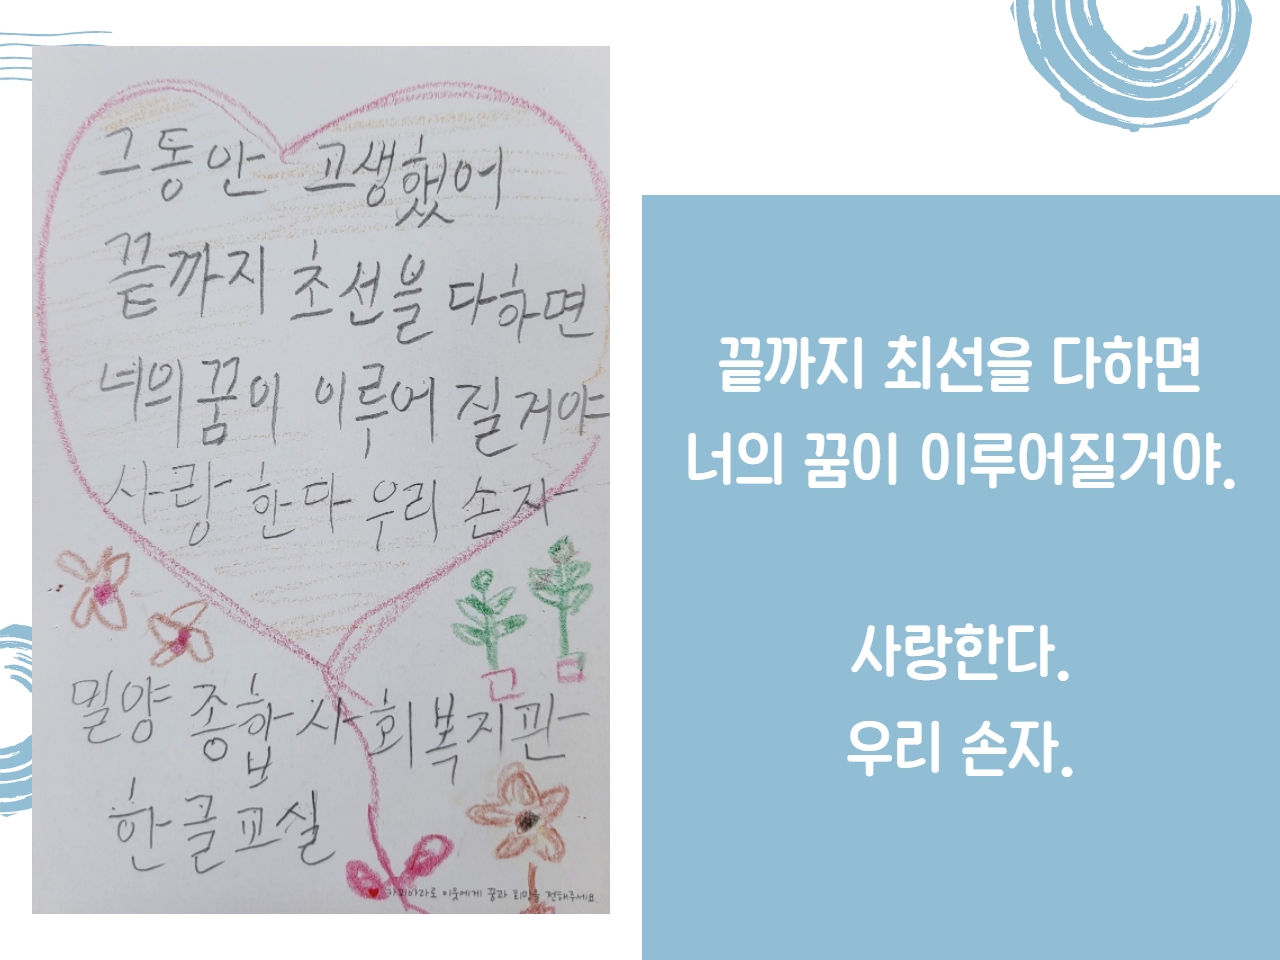 그동안 고생했어
끝까지 초선블 다하면
너의 꿈이 이루어 질거야
사랑 한다 우리 손자
밀양 종합 사회복지관
한글교실
이웃에게 꿈과 희망을 전해주세요.
끝까지 최선을 다하면
너의 꿈이 이루어질거야.
사랑한다.
우리 손자.